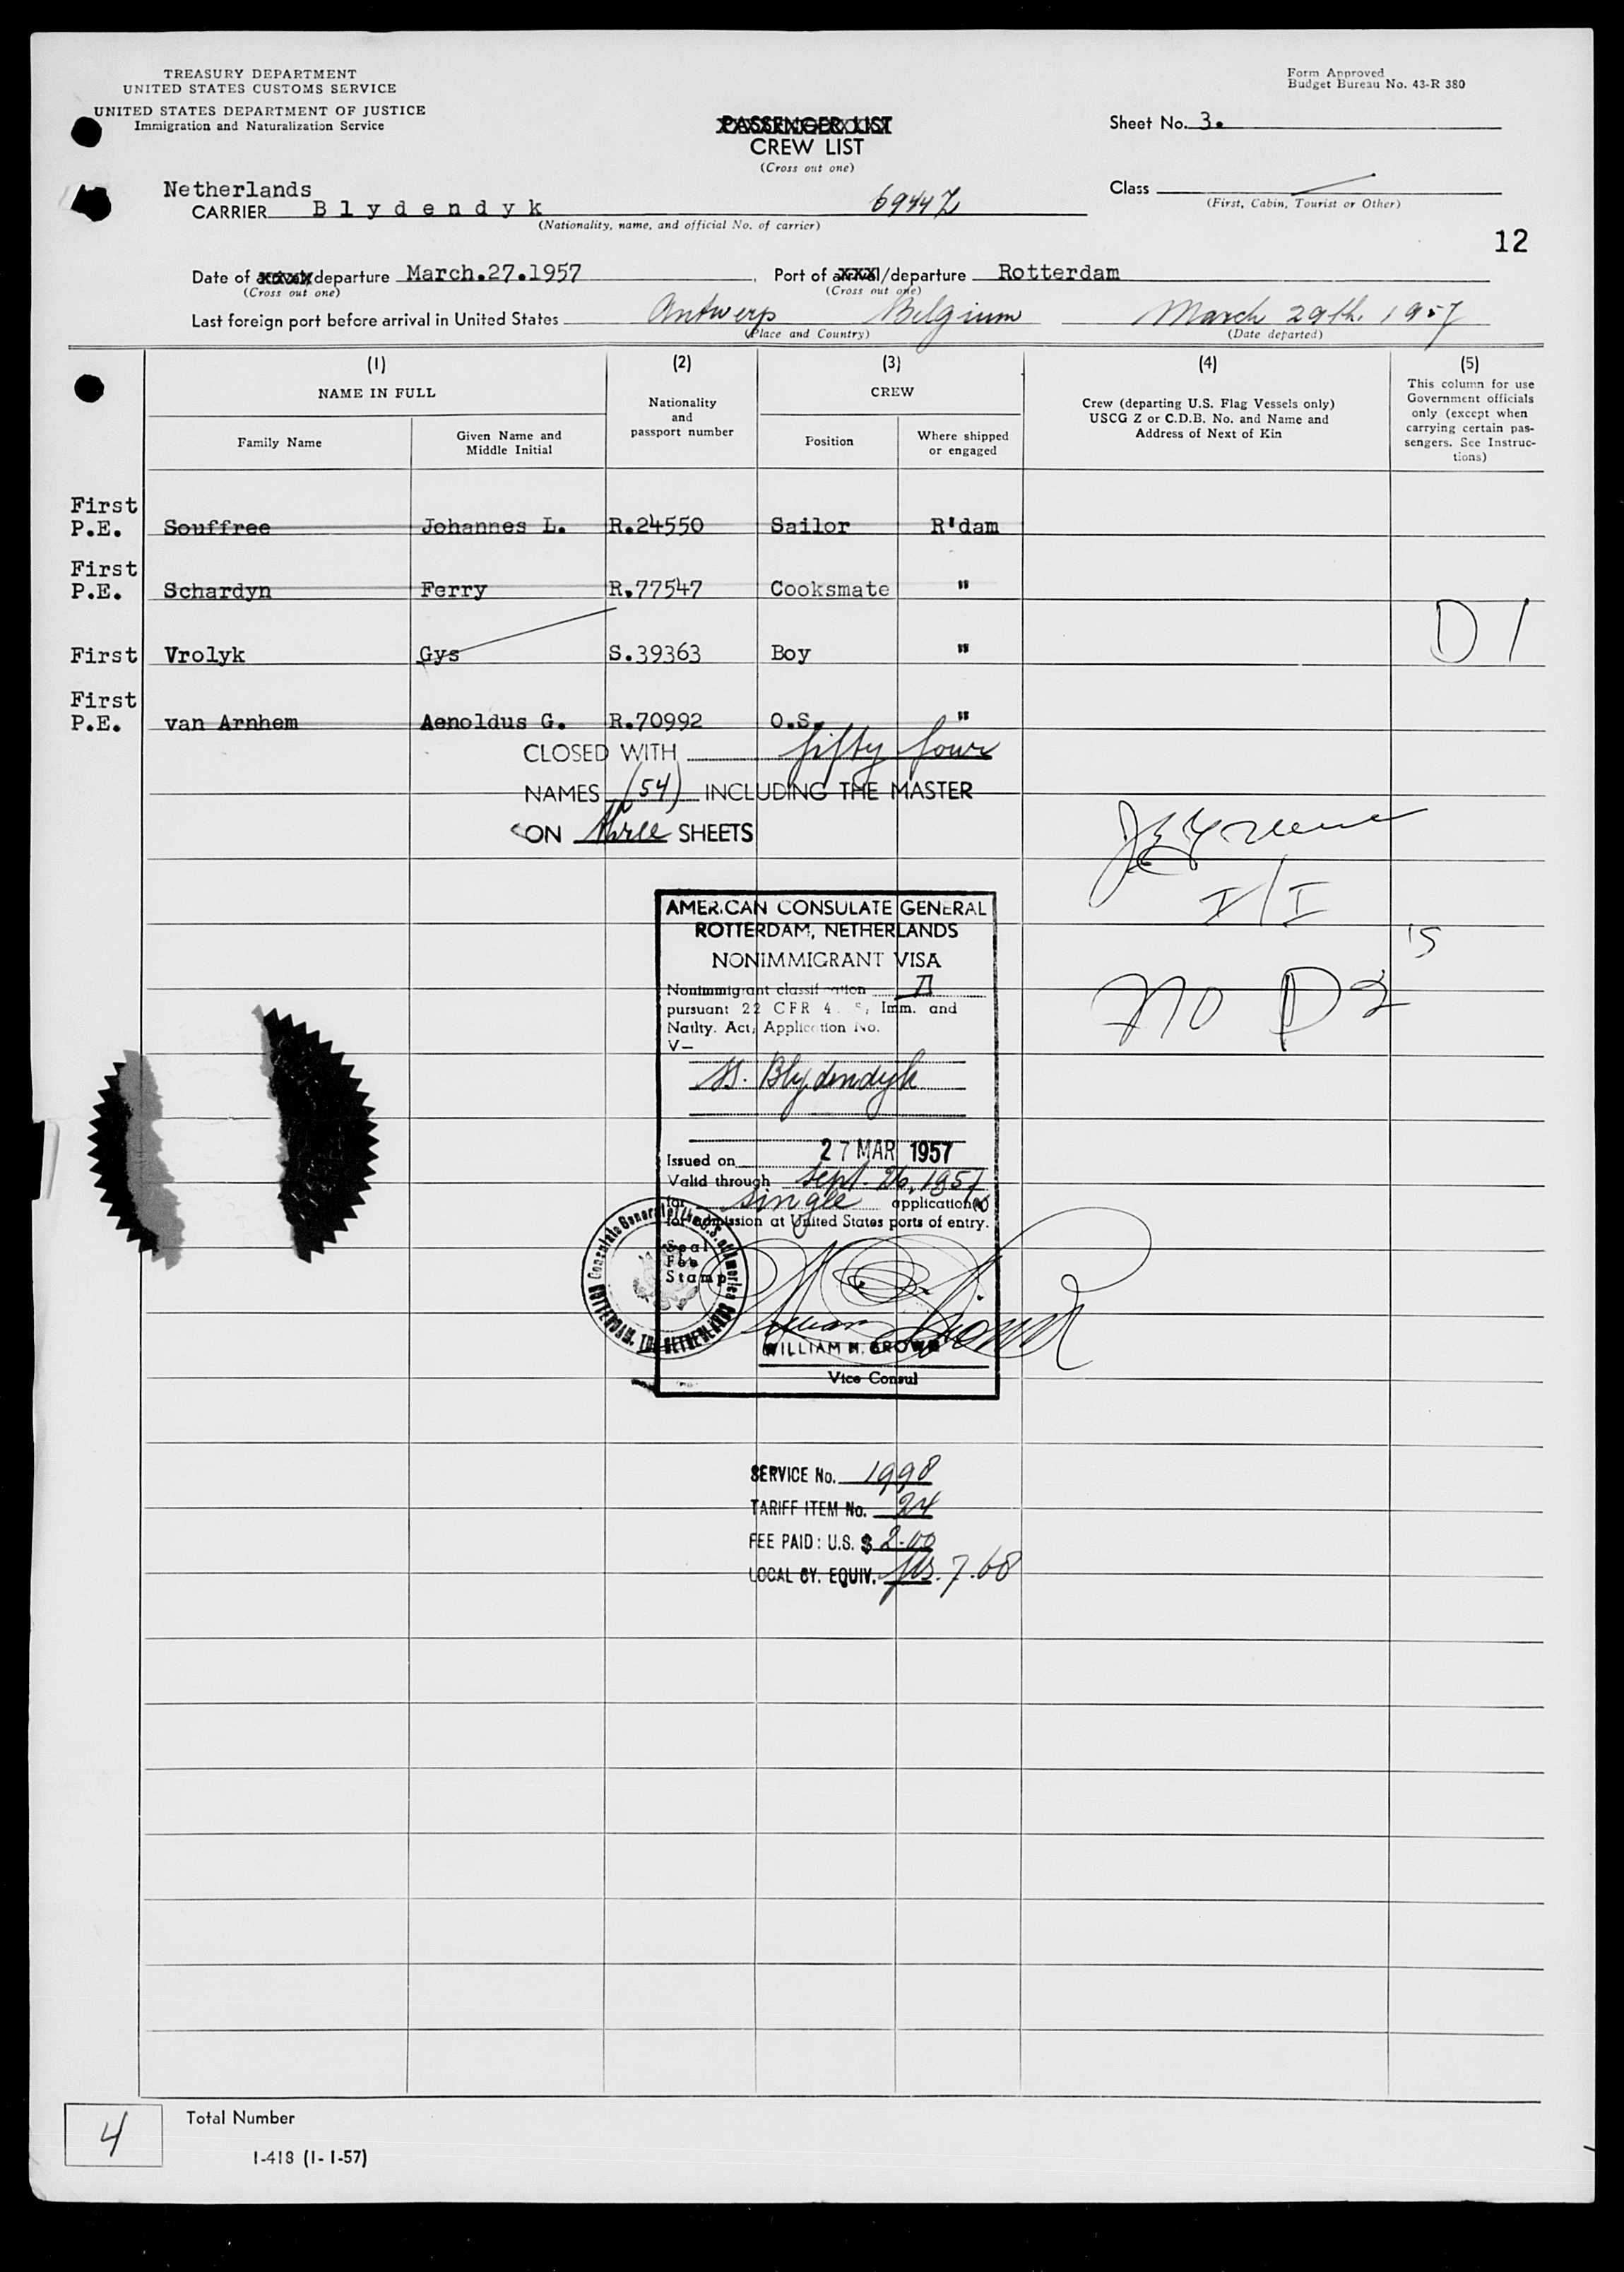 TREASURY DEPARTMENT
UNITED STATES CUSTOMS SERVICE
UNITED STATES DEPARTMENT OF JUSTICE
Immigration and Naturalization Service
Form Approved
Budget Bureau No. 43-R 380
PASSENGER LIST
CREW LIST
(Cross out one)
Sheet No. 3.
Class
(First, Cabin, Tourist or Other)
Netherlands
CARRIER Blydendyk
(Nationality, name, and official No. of carrier)
12
Date of departure March.27.1957 Port of arrival/departure Rotterdam
(Cross out one) (Cross out one)
Last foreign port before arrival in United States Antwerp Belgium March 29th. 1957
(Place and Country) (Date departed)
(1) (2) (3) (4) (5)
NAME IN FULL
Nationality and passport number
CREW
Crew (departing U.S. Flag Vessels only)
USCG Z or C.D.B. No. and Name and
Address of Next of Kin
This column for use
Government officials
only (except when
carrying certain pas-
sengers. See Instruc-
tions)
Family Name
Given Name and
Middle Initial
Position
Where shipped
or engaged
First
P.E. Souffree Johannes L. R.24550 Sailor R'dam
First
P.E. Schardyn Ferry R.77547 Cooksmate "
D 1
First Vrolyk Gys S.39363 Boy "
First
P.E. van Arnhem Aenoldus G. R.70992 O.S. "
CLOSED WITH fifty four
NAMES (54) INCLUDING THE MASTER
ON three SHEETS
I/I
no D2 's
AMERICAN CONSULATE GENERAL
ROTTERDAM, NETHERLANDS
NONIMMIGRANT VISA
Nonimmigrant classification
pursuant 22 CFR 4 5, Imm. and
Natlty. Act; Application No.
V-
SS. Blydendyk
Issued on 27 MAR 1957
Valid through Sept. 26, 1957
for single application
for admission at United States ports of entry.
Seal
Fee
Stamp
Consulate General of the U.S. of America
ROTTERDAM, THE NETHERLANDS
WILLIAM H. BROWN
Vice Consul
SERVICE No. 1998
TARIFF ITEM No. 24
FEE PAID: U.S. $ 2.00
LOCAL CY. EQUIV. fls. 7.68
4
Total Number
I-418 (1-1-57)